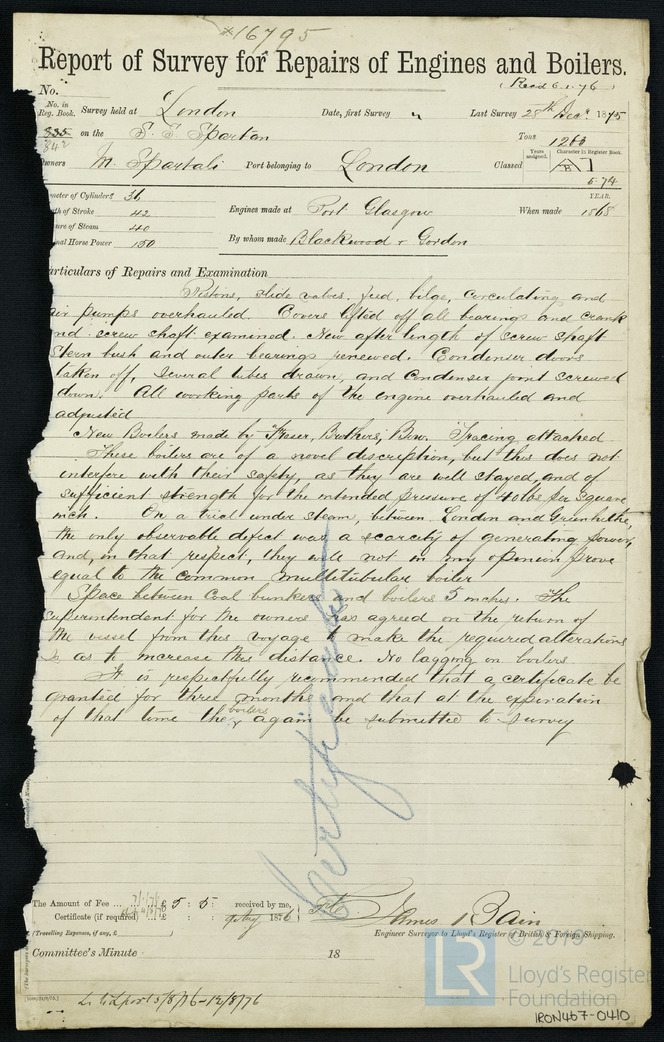 *16795
Report of Survey for Repairs of Engines and Boilers.
(Recd 6.1.76)
No.
No. in Reg. Book. Survey held at London Date, first Survey " Last Survey 28th Decr 1875
835 on the S.S Spartan Tons 1283
842
Owners M. Spartali Port belonging to London Classed Years assigned. Character in Register Book.
5.74
meter of Cylinders 36 YEAR.
th of Stroke 42 Engines made at Port Glasgow When made 1868
ure of Steam 40
nal Horse Power 150 By whom made Blackwood & Gordon
articulars of Repairs and Examination
Pistons, slide valves, feed, bilge, circulating and
air pumps overhauled. Covers lifted off all bearings and crank
and screw shaft examined. New after length of screw shaft
Stern bush and outer bearings renewed. Condenser doors
taken off, several tubes drawn, and condenser joint screwed
down. All working parts of the engine overhauled and
adjusted
New Boilers made by Fraser, Brothers, Bow. Tracing attached
These boilers are of a novel description, but this does not
interfere with their safety, as they are well stayed, and of
sufficient strength for the intended pressure of 40 lbs per square
inch. On a trial under steam, between London and Greenhithe,
the only observable defect was a scarcity of generating power,
and, in that respect, they will not in my opinion prove
equal to the common multitubular boiler
Space between Coal bunkers and boilers 5 inches. The
superintendent for the owners has agreed on the return of
the vessel from this voyage to make the required alterations
so as to increase this distance. No lagging on boilers
It is respectfully recommended that a certificate be
granted for three months and that at the expiration
of that time the boilers again be submitted to survey
Certificate
The Amount of Fee ... £ 5 : 5 : received by me,
Certificate (if required) £ : : 1876
James Bain
(Travelling Expenses, if any, £ ) Engineer Surveyor to Lloyd's Register of British & Foreign Shipping.
Committee's Minute 18
© 2019
LR
Lloyd's Register
Foundation
IRON467-0410